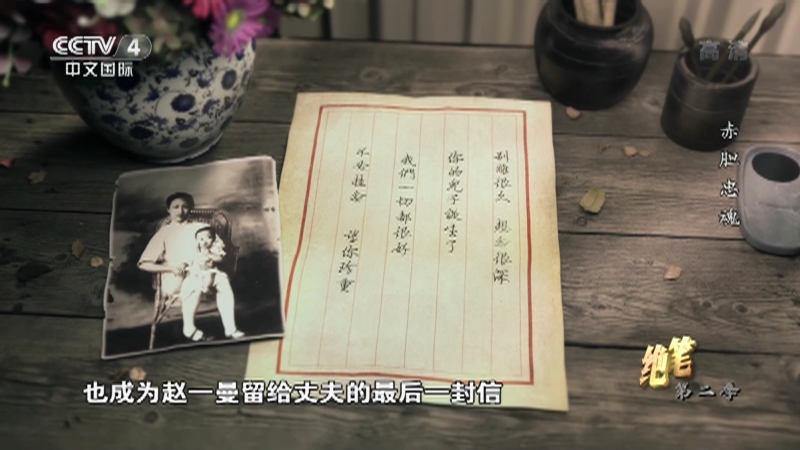 CCTV 4
中文国际
高清
赤胆忠魂
别离很久 想念很深
你的儿子诞生了
我們一切都很好
不必挂念 望你珍重
绝笔
第二季
也成为赵一曼留给丈夫的最后一封信